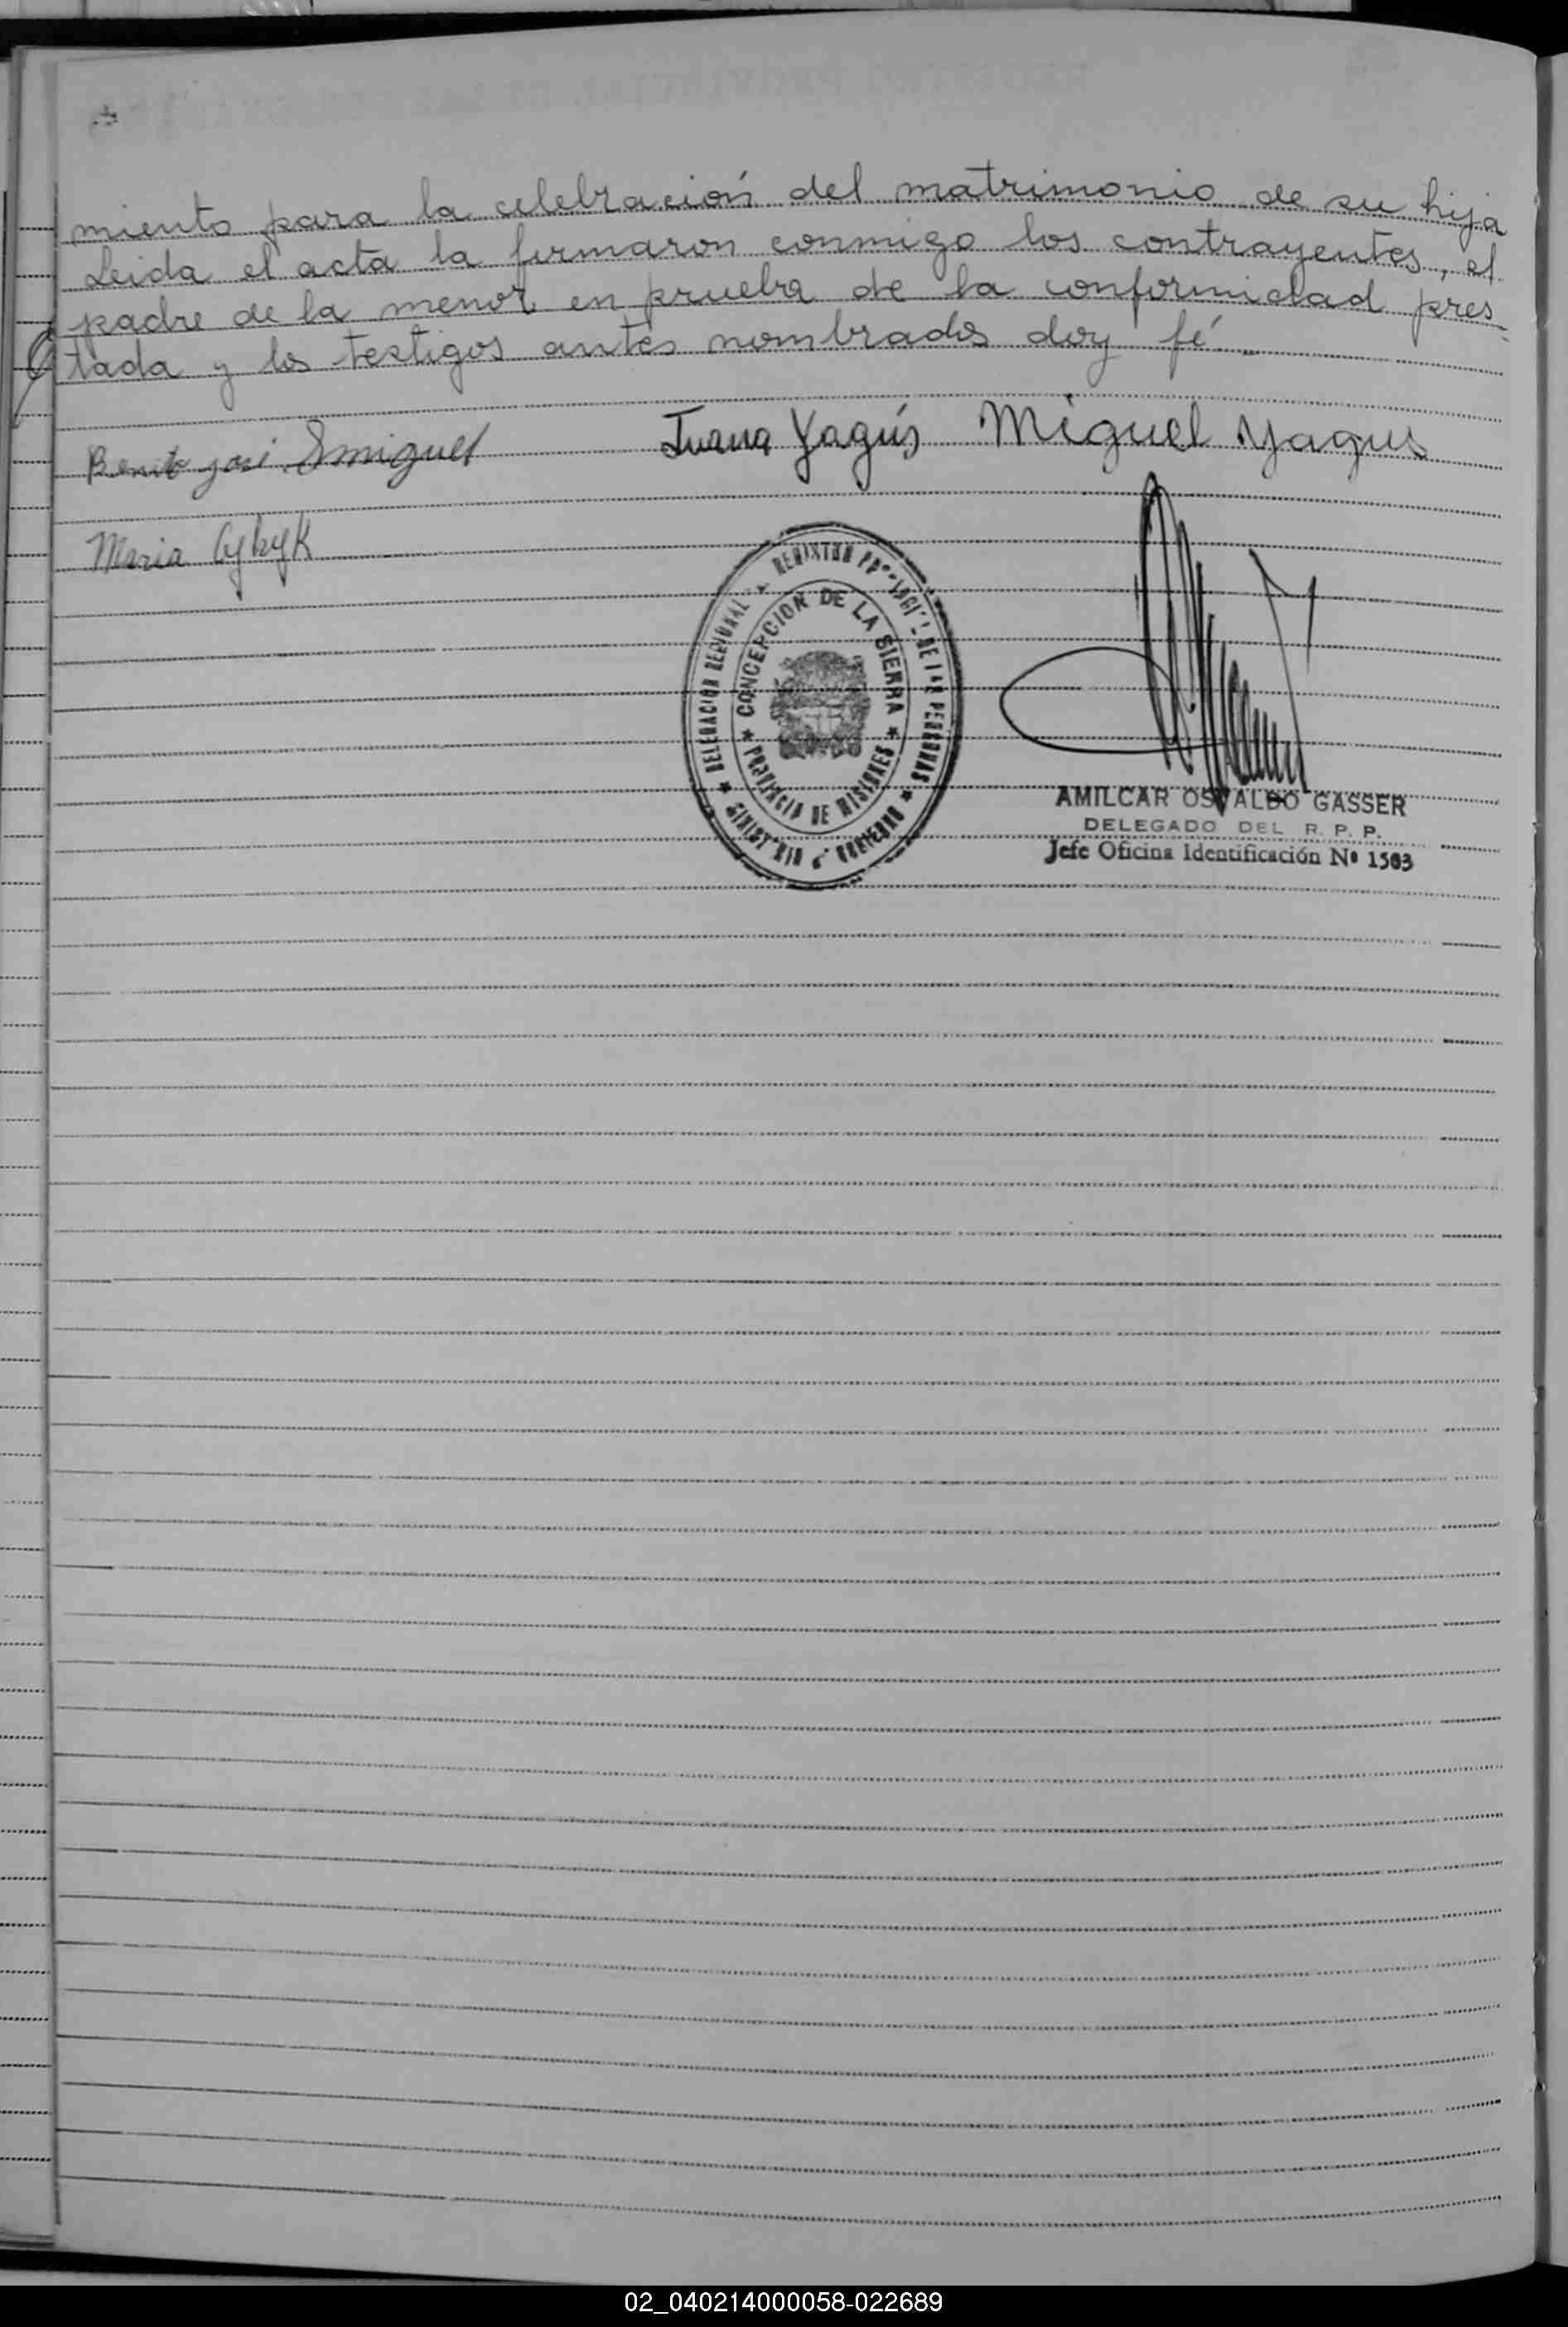 miento para la celebración del matrimonio de su hija
Leida el acta la firmaron conmigo los contrayentes, el
padre de la menor en prueba de la conformidad pres-
tada y los testigos antes nombrados doy fé
Benito José Smiguel Juana Yagús Miguel Yagus
Maria CyhyK
DELEGACION REGIONAL * REGISTRO PROVINCIAL DE LAS PERSONAS * MINISTERIO DE GOBIERNO *
CONCEPCION DE LA SIERRA * PROVINCIA DE MISIONES *
AMILCAR OSVALDO GASSER
DELEGADO DEL R. P. P.
Jefe Oficina Identificación Nº 1503
02_040214000058-022689